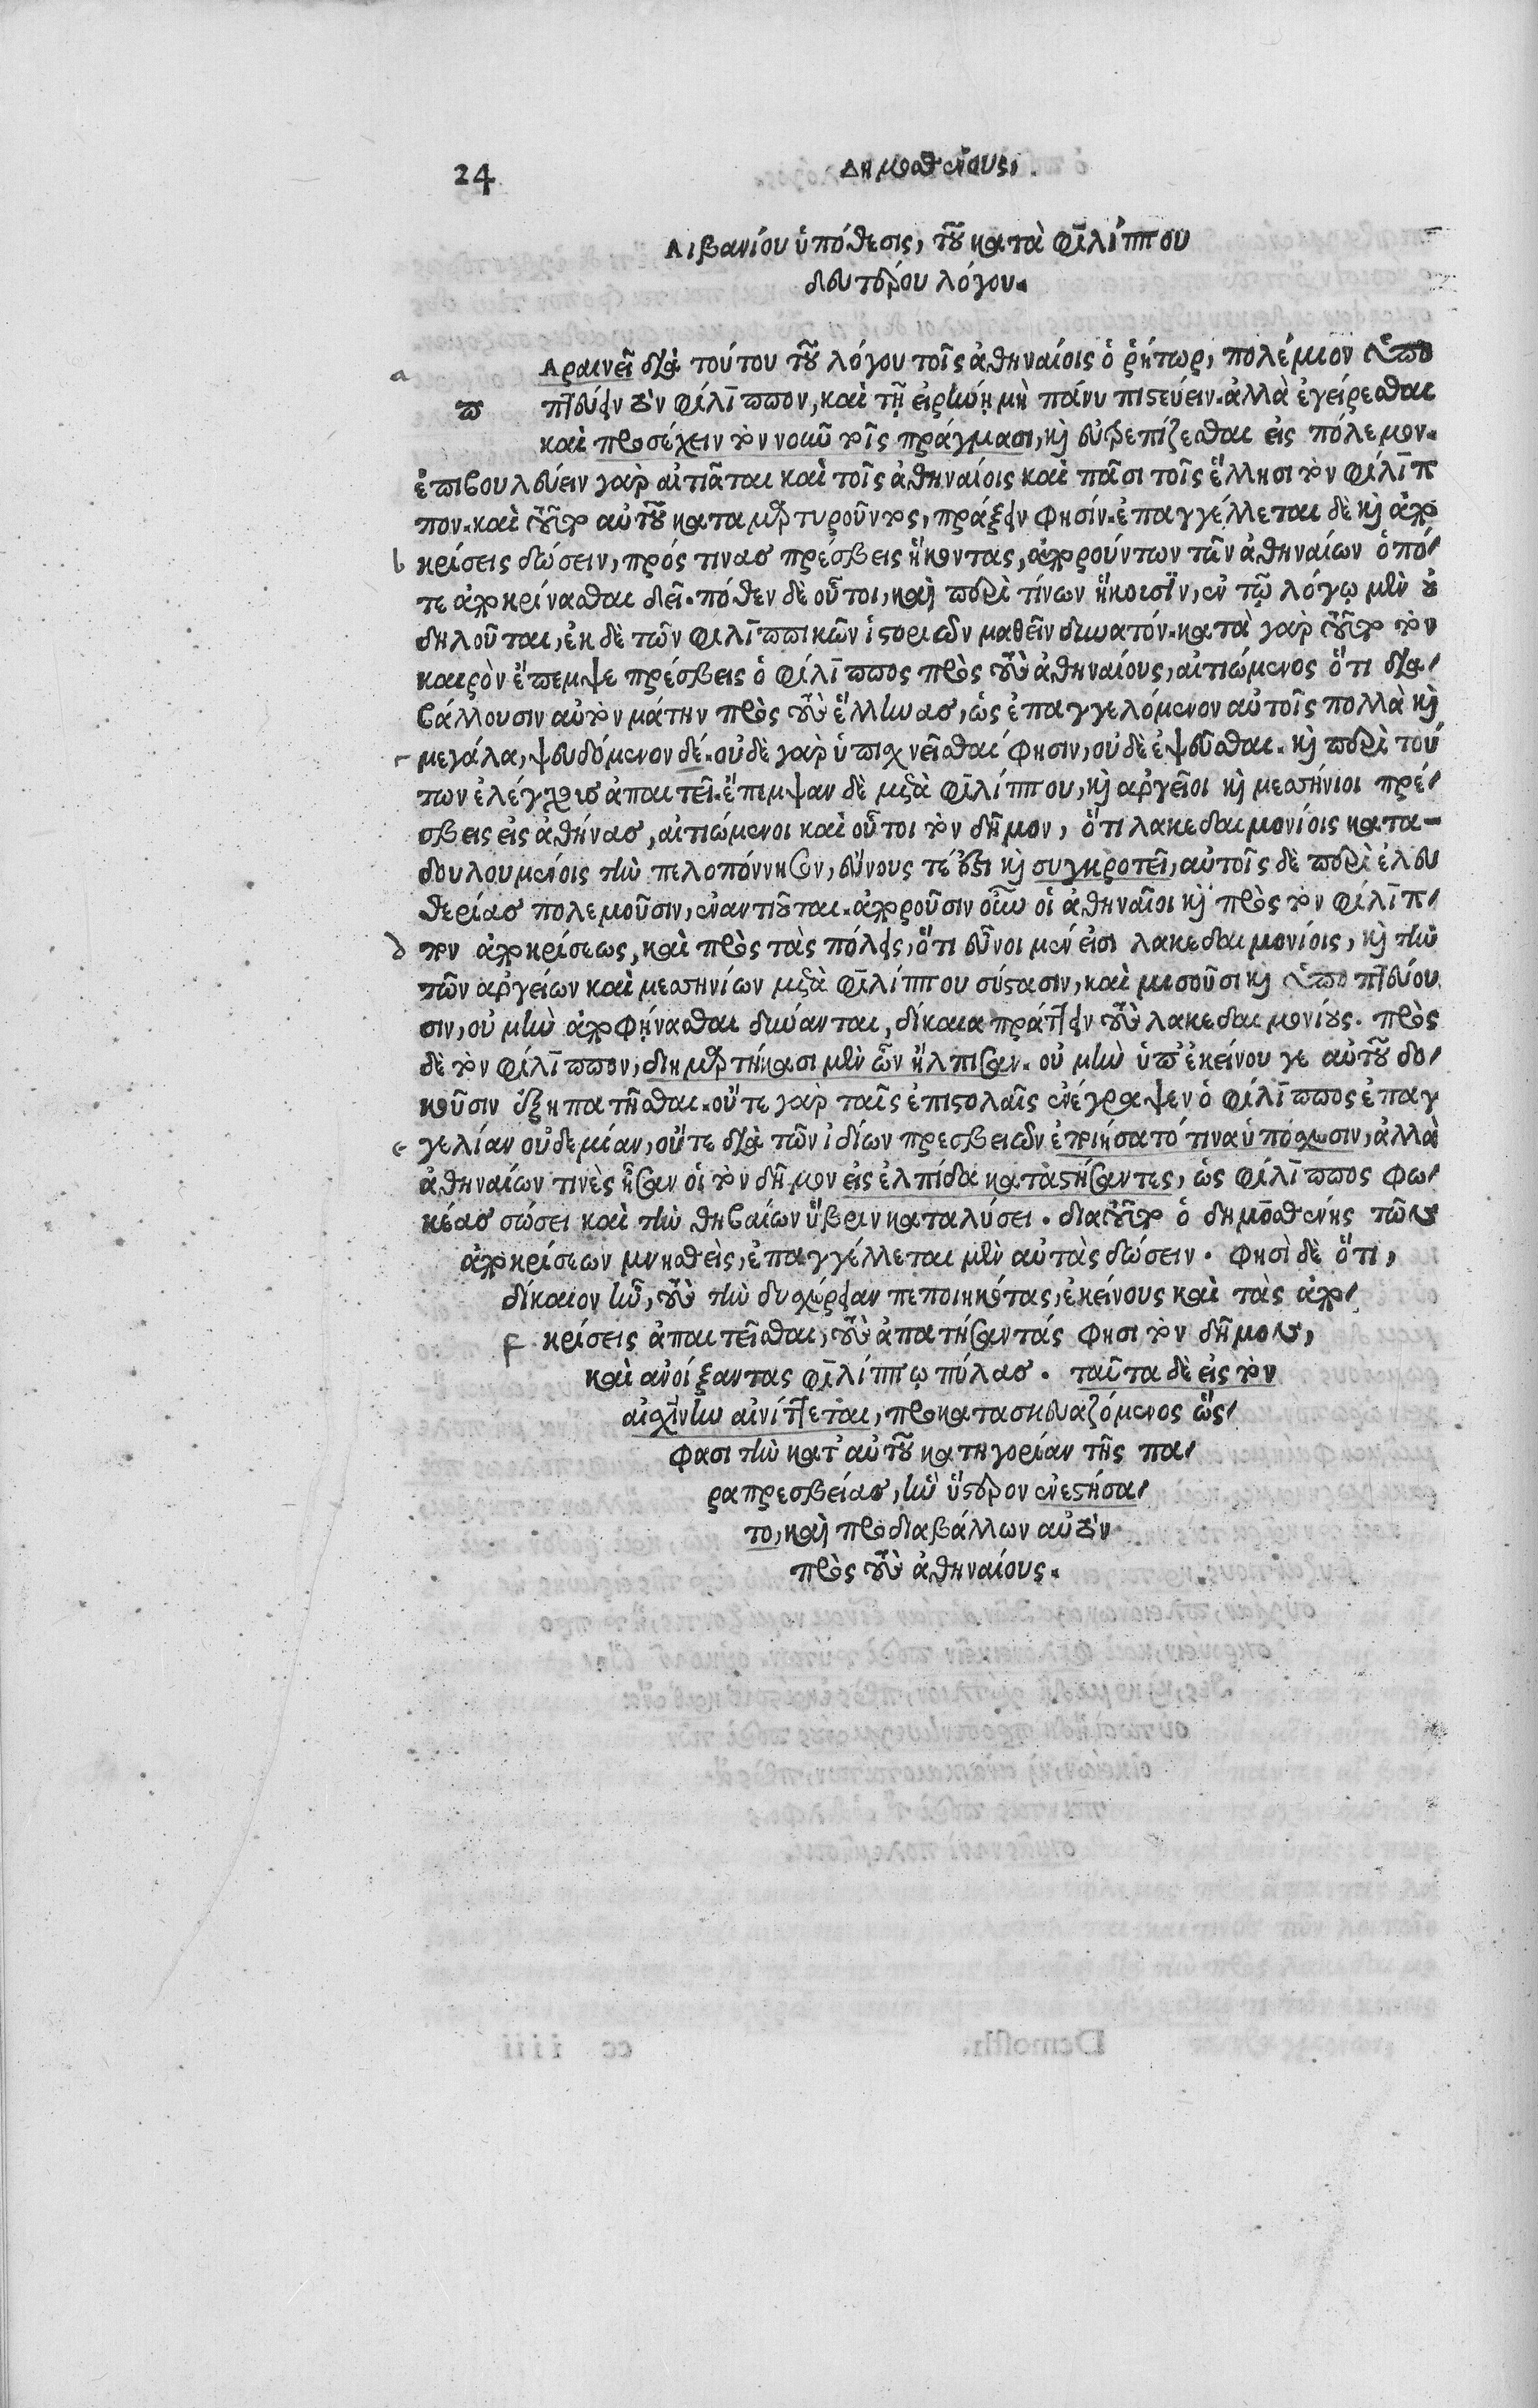 24
Δημοσθένους,
Λιβανίου ὑπόθεσις, τοῦ κατὰ Φιλίππου
δευτέρου λόγου.
a Αραινεῖ διὰ τούτου τοῦ λόγου τοῖς ἀθηναίοις ὁ ῥήτωρ, πολέμιον ὑπο
π πτεύειν τὸν Φίλιππον, καὶ τῇ εἰρήνῃ μὴ πάνυ πιστεύειν. ἀλλὰ ἐγείρεσθαι
καὶ προσέχειν τὸν νοῦν τοῖς πράγμασι, καὶ εὐτρεπίζεσθαι εἰς πόλεμον.
ἐπιβουλεύειν γὰρ αἰτιᾶται καὶ τοῖς ἀθηναίοις καὶ πᾶσι τοῖς ἕλλησι τὸν Φίλιπ
πον. καὶ τοῦτο αὐτοῦ καταμαρτυροῦν τὰς, πράξειν φησίν. ἐπαγγέλλεται δὲ καὶ ἀπο
b κρίσεις δώσειν, πρός τινας πρέσβεις ἥκοντας, ἀπορούντων τῶν ἀθηναίων ὁπό-
τε ἀποκρίνασθαι δεῖ. πόθεν δὲ οὗτοι, καὶ περὶ τίνων ἥκουσιν, ἐν τῷ λόγῳ μὲν οὐ
δηλοῦται, ἐκ δὲ τῶν Φιλιππικῶν ἱστοριῶν μαθεῖν δυνατόν. κατὰ γὰρ τοῦτο τὸν
καιρὸν ἔπεμψε πρέσβεις ὁ Φίλιππος πρὸς τοὺς ἀθηναίους, αἰτιώμενος ὅτι δια-
βάλλουσιν αὐτὸν μάτην πρὸς τοὺς ἕλληνας, ὡς ἐπαγγελόμενον αὐτοῖς πολλὰ καὶ
c μεγάλα, ψευδόμενον δέ. οὐδὲ γὰρ ὑπισχνεῖσθαί φησιν, οὐδὲ ἐψεῦσθαι. καὶ περὶ τού
των ἐλέγχους ἀπαιτεῖ. ἔπεμψαν δὲ μετὰ Φιλίππου, καὶ ἀργεῖοι καὶ μεσσήνιοι πρέ-
σβεις εἰς ἀθήνας, αἰτιώμενοι καὶ οὗτοι τὸν δῆμον, ὅτι λακεδαιμονίοις κατα-
δουλουμένοις τὴν πελοπόννησον, εὔνους τέ ἐστι καὶ συγκροτεῖ, αὐτοῖς δὲ περὶ ἐλευ
θερίας πολεμοῦσιν, ἐναντιοῦται. ἀποροῦσιν οὖν οἱ ἀθηναῖοι καὶ πρὸς τὸν Φίλιπ-
d πον ἀποκρίσεως, καὶ πρὸς τὰς πόλεις, ὅτι εὖνοι μέν εἰσι λακεδαιμονίοις, καὶ τὴν
τῶν ἀργείων καὶ μεσσηνίων μετὰ Φιλίππου σύστασιν, καὶ μισοῦσι καὶ ὑποπτεύου
σιν, οὐ μὴν ἀποφήνασθαι δύνανται, δίκαια πράττειν τοὺς λακεδαιμονίους. πρὸς
δὲ τὸν Φίλιππον, διημαρτήκασι μὲν ὧν ἤλπισαν. οὐ μὴν ὑπ' ἐκείνου γε αὐτοῦ δο-
κοῦσιν ἐξηπατῆσθαι. οὔτε γὰρ ταῖς ἐπιστολαῖς ἐνέγραψεν ὁ Φίλιππος ἐπαγ
e γελίαν οὐδεμίαν, οὔτε διὰ τῶν ἰδίων πρεσβειῶν ἐποιήσατό τινα ὑπόσχεσιν, ἀλλὰ
ἀθηναίων τινὲς ἦσαν οἱ τὸν δῆμον εἰς ἐλπίδα καταστήσαντες, ὡς Φίλιππος Φω-
κέας σώσει καὶ τὴν θηβαίων ὕβριν καταλύσει. διατοῦτο ὁ δημοσθένης τῶν
ἀποκρίσεων μνησθεὶς, ἐπαγγέλλεται μὲν αὐτὰς δώσειν. φησὶ δὲ ὅτι,
δίκαιον ἦν, τοὺς τὴν δυσχέρειαν πεποιηκότας, ἐκείνους καὶ τὰς ἀπο-
f κρίσεις ἀπαιτεῖσθαι, τοὺς ἀπατήσαντάς φησι τὸν δῆμον,
καὶ ἀνοίξαντας Φιλίππῳ πύλας. ταῦτα δὲ εἰς τὸν
αἰσχίνην αἰνίττεται, προκατασκευαζόμενος ὥς-
φασι τὴν κατ' αὐτοῦ κατηγορίαν τῆς πα-
ραπρεσβείας, ἣν ὕστερον ἐνεστήσα-
το, καὶ προδιαβάλλων αὐτὸν
πρὸς τοὺς ἀθηναίους.